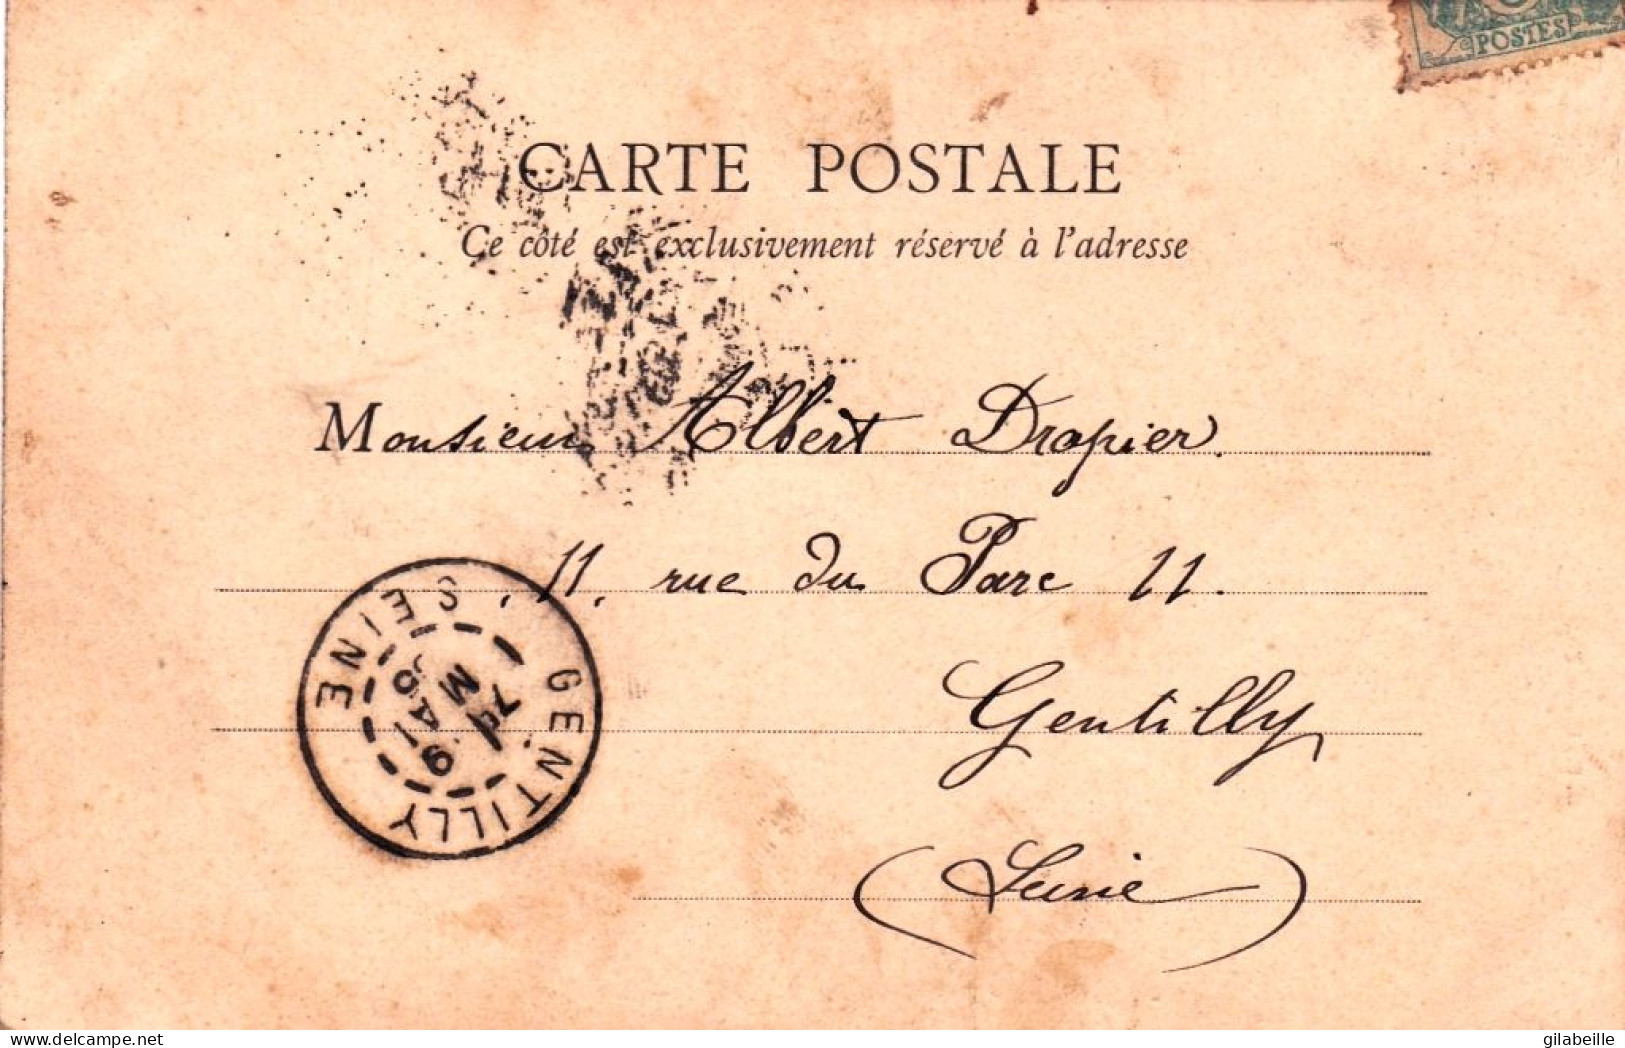 POSTES
CARTE POSTALE
Ce côté est exclusivement réservé à l'adresse
Monsieur Albert Drapier.
11, rue du Parc 11.
Gentilly
(Seine)
GENTILLY SEINE
7M
9 AI
delcampe.net
gilabeille